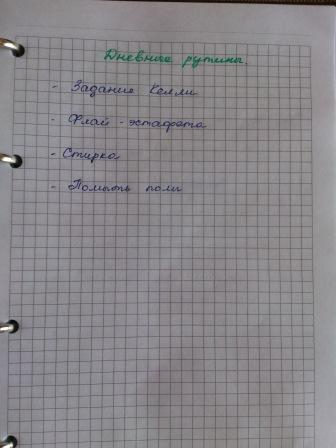 Дневные рутины
- Задание Келли
- Флай - эстафета
- Стирка
- Помыть полы